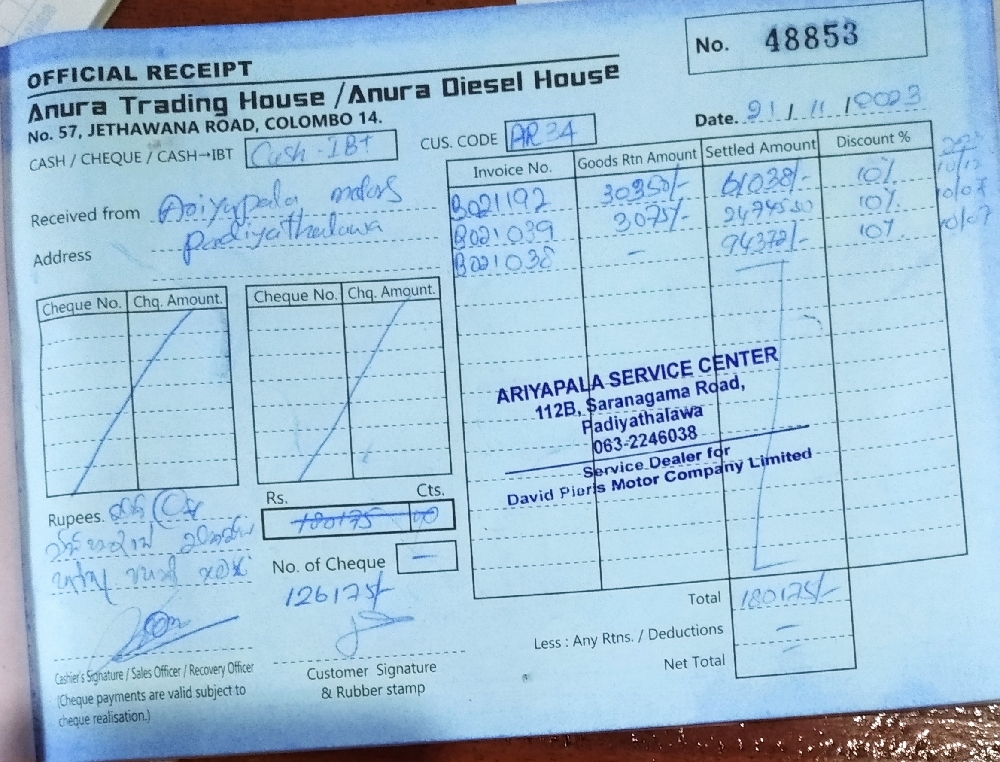 OFFICIAL RECEIPT
No. 48853
Anura Trading House / Anura Diesel House
No. 57, JETHAWANA ROAD, COLOMBO 14.
Date. 21 / 11 /
CASH / CHEQUE / CASH→IBT Cash - IBT
CUS. CODE AR 34
Received from Ariyapala motors
Address padiyathalawa
Invoice No. Goods Rtn Amount Settled Amount Discount %
B021192 30350/- 61038/- 10%
B021039 3075/- 10%
B021038 – 94372/- 10%
Cheque No. Chq. Amount. Cheque No. Chq. Amount.
ARIYAPALA SERVICE CENTER
112B, Saranagama Road,
Padiyathalawa
063-2246038
Service Dealer for
David Pieris Motor Company Limited
Rupees.
Rs. Cts.
180175 00
No. of Cheque –
126175/-
Total 180175/-
Less : Any Rtns. / Deductions –
Net Total
Cashier's Signature / Sales Officer / Recovery Officer
(Cheque payments are valid subject to
cheque realisation.)
Customer Signature
& Rubber stamp